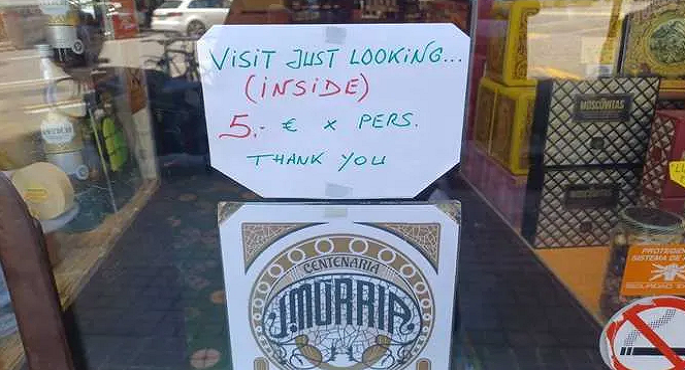 VISIT JUST LOOKING...
(INSIDE)
5,- € x PERS.
THANK YOU
CENTENARIA
J.MÚRRIA
MOSCOVITAS
PROTEGIDO
SISTEMA DE